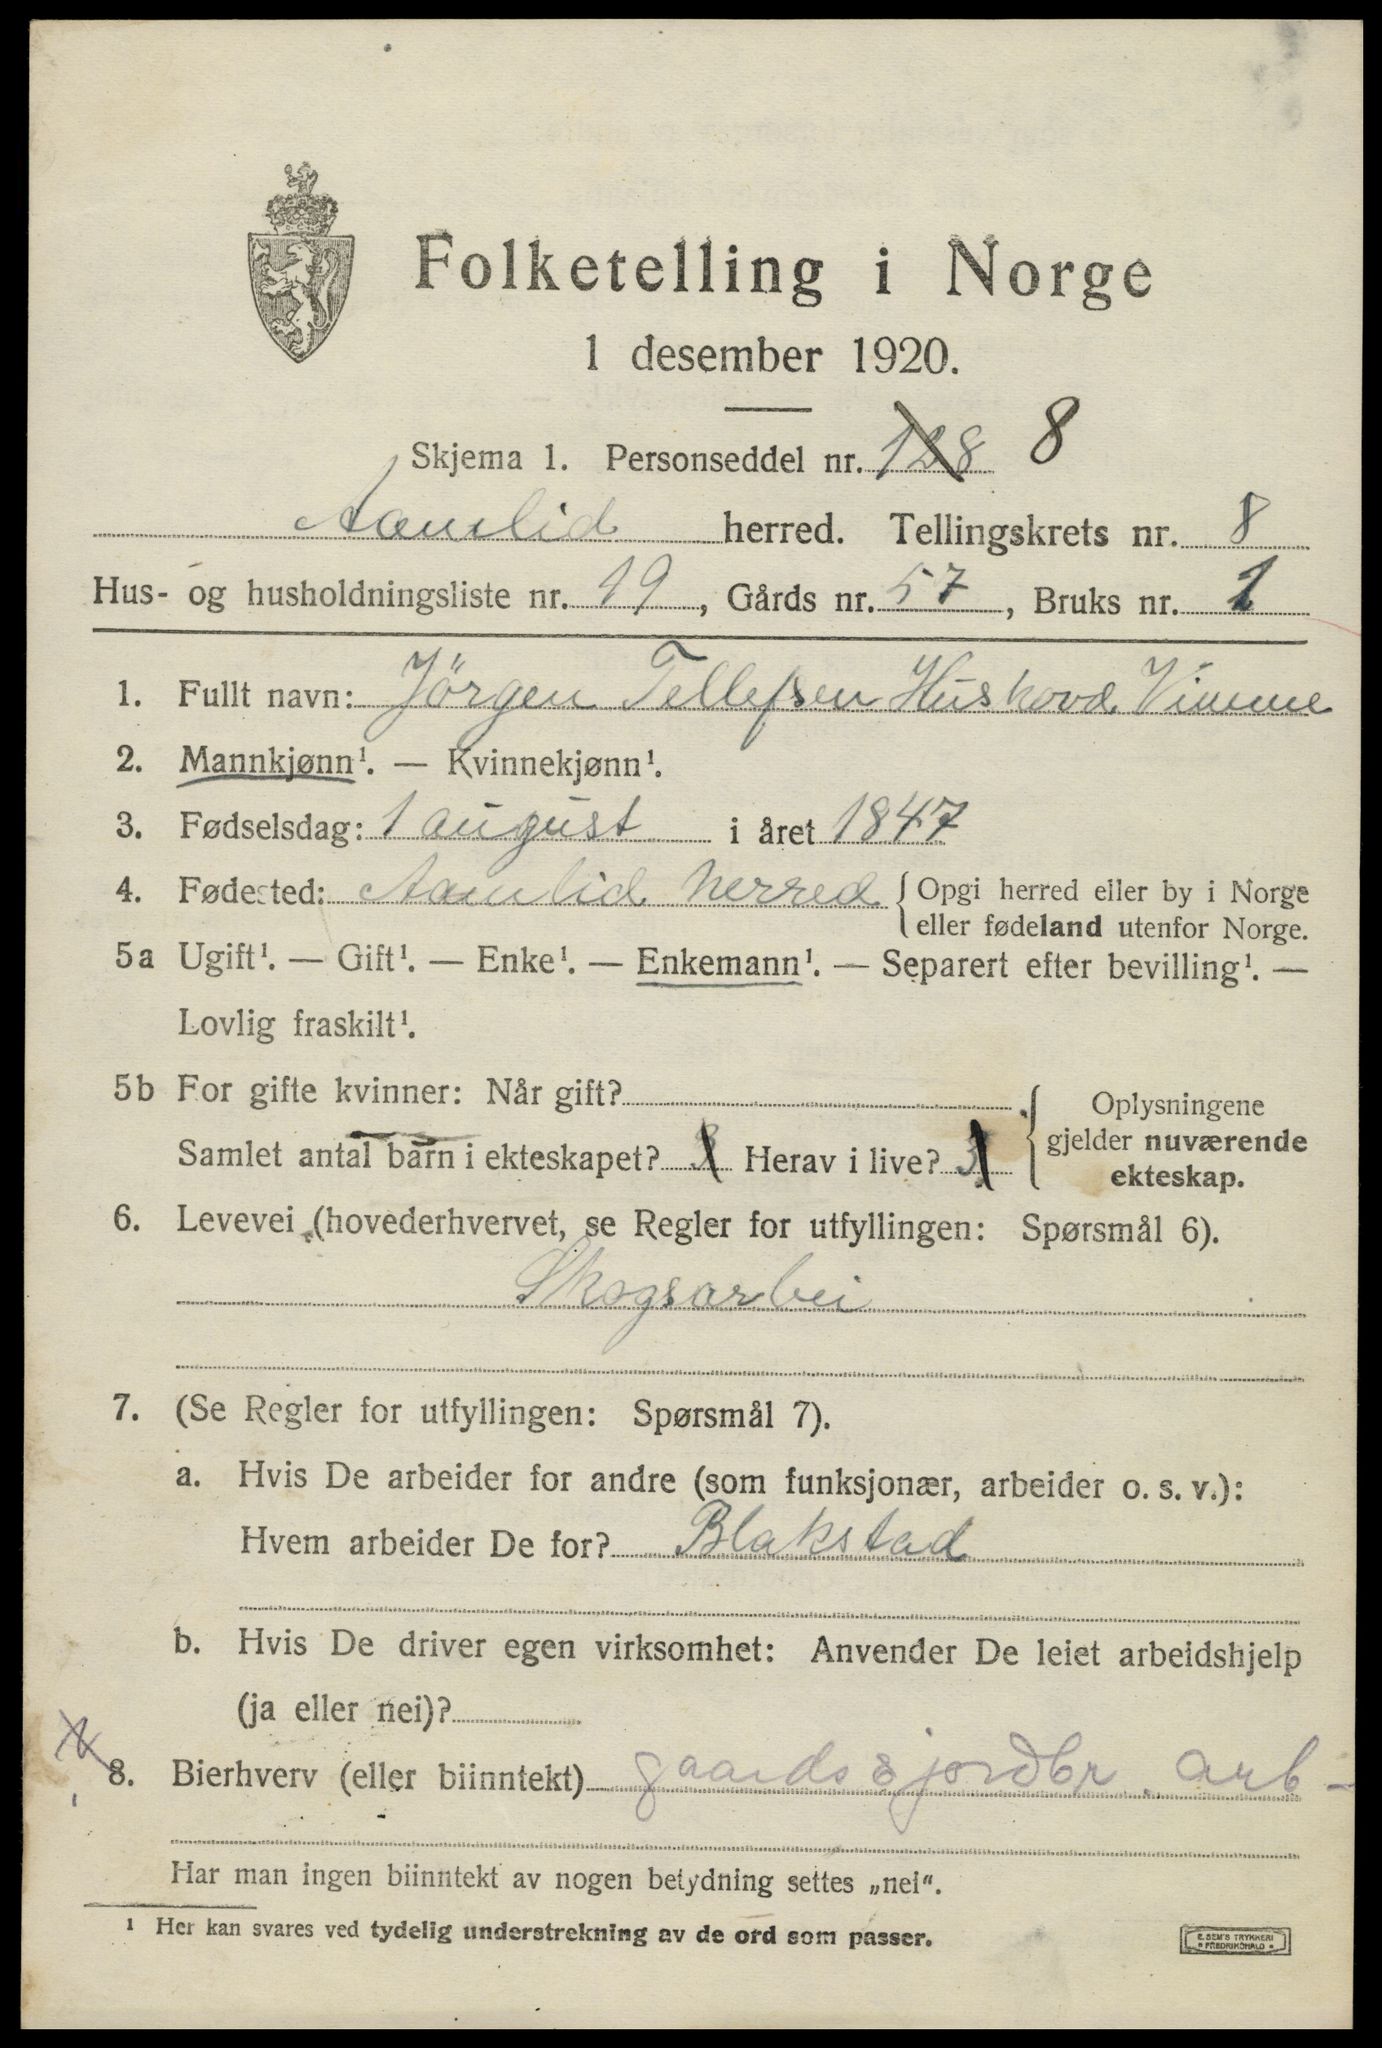 Folketelling i Norge
1 desember 1920.
Skjema 1. Personseddel nr. 128 8
Aamlid herred. Tellingskrets nr. 8
Hus- og husholdningsliste nr. 19, Gårds nr. 57, Bruks nr. 1
1. Fullt navn: Jörgen Tellefsen Huskovd Vimme
2. Mannkjønn¹. — Kvinnekjønn¹.
3. Fødselsdag: 1 august i året 1847
4. Fødested: Aamlid herred { Opgi herred eller by i Norge
eller fødeland utenfor Norge.
5a Ugift¹. — Gift¹. — Enke¹. — Enkemann¹. — Separert efter bevilling¹. —
Lovlig fraskilt¹.
5b For gifte kvinner: Når gift? . { Oplysningene
gjelder nuværende
ekteskap.
Samlet antal barn i ekteskapet? 3 Herav i live? 3
6. Levevei (hovederhvervet, se Regler for utfyllingen: Spørsmål 6).
Skogsarbei
7. (Se Regler for utfyllingen: Spørsmål 7).
a. Hvis De arbeider for andre (som funksjonær, arbeider o. s. v.):
Hvem arbeider De for? Blakstad
b. Hvis De driver egen virksomhet: Anvender De leiet arbeidshjelp
(ja eller nei)?
8. Bierhverv (eller biinntekt) gaards & jordbr. arb-
Har man ingen biinntekt av nogen betydning settes „nei“.
¹ Her kan svares ved tydelig understrekning av de ord som passer.
E. SEM'S TRYKKERI
• FREDRIKSHALD •